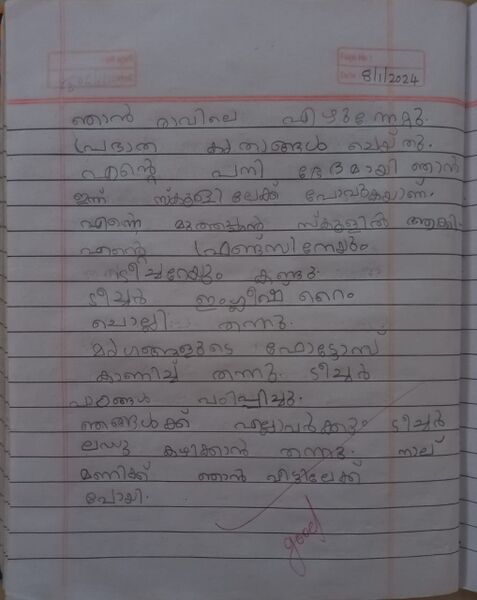 8/1/2024
ഞാൻ രാവിലെ എഴുന്നേറ്റു.
പ്രഭാത കൃത്യങ്ങൾ ചെയ്തു.
എന്റെ പനി ഭേദമായി ഞാൻ
ഇന്ന് സ്കൂളിലേക്ക് പോവുകയാണ്.
എന്നെ മുത്തച്ഛൻ സ്കൂളിൽ ആക്കി.
എന്റെ ഫ്രണ്ട്സിനേയും
ടീച്ചറേയും കണ്ടു.
ടീച്ചർ ഇംഗ്ലീഷ് റൈം
ചൊല്ലി തന്നു.
മൃഗങ്ങളുടെ ഫോട്ടോസ്
കാണിച്ച് തന്നു. ടീച്ചർ
പാഠങ്ങൾ പഠിപ്പിച്ചു.
ഞങ്ങൾക്ക് എല്ലാവർക്കും ടീച്ചർ
ലഡു കഴിക്കാൻ തന്നു. നാല്
മണിക്ക് ഞാൻ വീട്ടിലേക്ക്
പോയി.
good